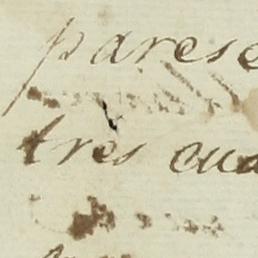 parese
tres cua